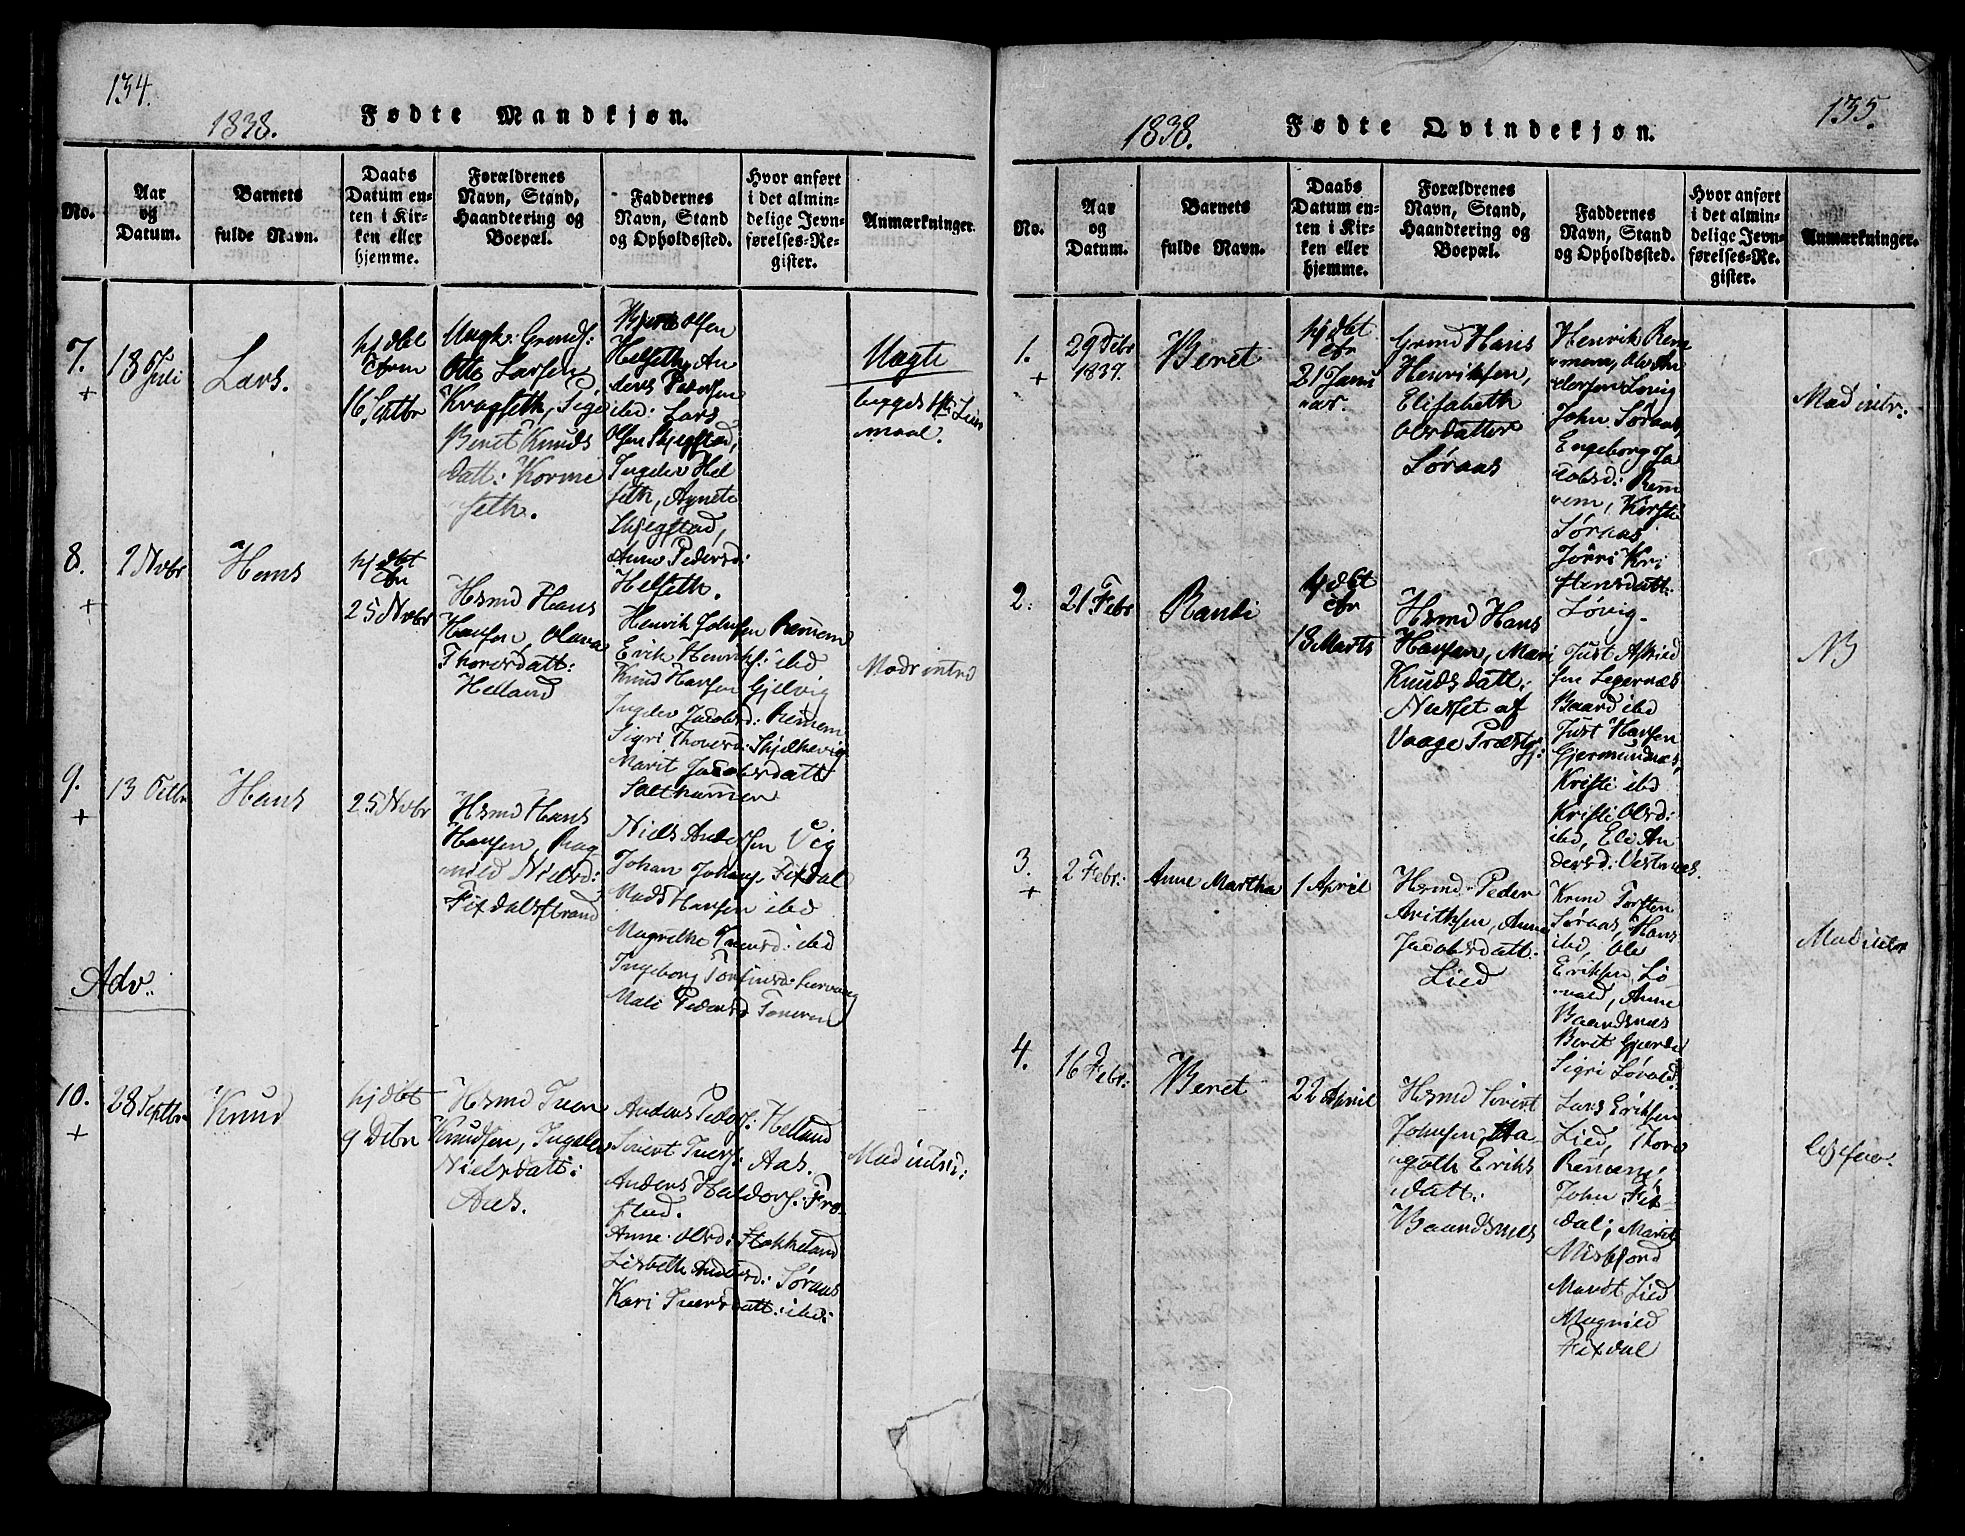 134.
1838.
Fødte Mandkjøn.
No.
Aar
og
Datum.
Barnets
fulde Navn.
Daabs
Datum en-
ten i Kir-
ken eller
hjemme.
Forældrenes
Navn, Stand,
Haandtering og
Boepæl.
Faddernes
Navn, Stand
og Opholdssted.
Hvor anført
i det almin-
delige Jevn-
førelses-Re-
gister.
Anmærkninger.
7.
+
18 Juli
Lars.
hj dbt
16 Septbr
Ungk: Grmdf:
Otto Larsen
Kragseth, Pige
Beret Knuds
datt: Korme
seth.
Olsen
Helseth, An
ders Pedersen
ibd: Lars
Olsen Skjegstad,
Ingeler Hel
seth, Agnete
Skjegstad,
Anne Pedersd:
Helseth.
Uægte
begges 1ste Leier
maal.
8.
+
2 Novbr
Hans
hj dbt
25 Novbr
Hsmd Hans
Hansen, Olava
Thoresdatt:
Helland
Henrik Johnsen Remem
Erik Henriks: ibd
Knud Hansen Gjelvig
Ingeler Jacobsd: Remem
Sigri Thoresd: Skjelhevig
Marit Jacobsdatt
Salthamer
Modr intrd
9.
+
13 Octbr
Hans
25 Novbr
Hsmd Hans
Hansen, Rag
nild Nielsd:
Fixdalsstrand
Niels Andersen Vig
Johan Johans. Fixdal
Mads Hansen ibd
Magrethe Iversd: ibd
Ingeborg Torfinsd:
Mali Pedersd
Adv.
10.
+
28 Septbr
Knud
hj døbt
9 Debr
Hsmd Iver
Knudsen, Ingeler
Nielsdatt:
Aas.
Anders Peders: Helland
Sivert Ivers: Aas.
Anders Haldors: Fro
stad.
Anne Olsd: Stokkeland
Lisbeth Andersd: Søraas
Kari Iversdatt: ibd:
Mod introd:
135.
1838.
Fødte Qvindekjøn.
No.
Aar
og
Datum.
Barnets
fulde Navn.
Daabs
Datum en-
ten i Kir-
ken eller
hjemme.
Forældrenes
Navn, Stand,
Haandtering og
Boepæl.
Faddernes
Navn, Stand
og Opholdssted.
Hvor anført
i det almin-
delige Jevn-
førelses-Re-
gister.
Anmærkninger.
1.
+
29 Debr
1837.
Beret
hj dbt
21 Janu
ar.
Grmd Hans
Henriksen,
Elisabeth
Olsdatter
Søraas
Henrik Rem
mem, Ole An
dersen Løvig
John Søraas,
Engeborg Ja
cobsd: Rem
mem, Kirsti
Søraas
Jørri Kri
stensdatt:
Løvig.
Mod intr:
2.
21 Febr
Randi
hj dbt
18 Marts
Hsmd Hans
Hansen, Mari
Knudsdatt:
Nusset af
Vaage Præstgj:
Just Asried
sen Legernæs
Baard ibd
Just Hansen
Gjermundnæs,
Kristi ibd
Kristi Olsd:
ibd, Eli An
dersd: Vestnæs
NB
3.
+
2 Febr:
Anne Martha
1 April
Hsmd Peder
Arithsen, Anne
Jacobsdatt:
Lied
Knud Torsten
Søraas, Hans
ibd, Ole
Eriksen Lø
vold, Anne
Baardsnæs
Berit Gjerde
Sigri Løvold.
Mod intr
4.
16 Febr:
Beret
22 April
Hsmd Sivert
Johnsen, Aa
goth Eriks
datt:
Baardsnes
Lars Eriksen
Lied, Thore
Remem,
John Fix-
dal, Marit
Misfjord
Marit Lied
Magnild
Fixdal